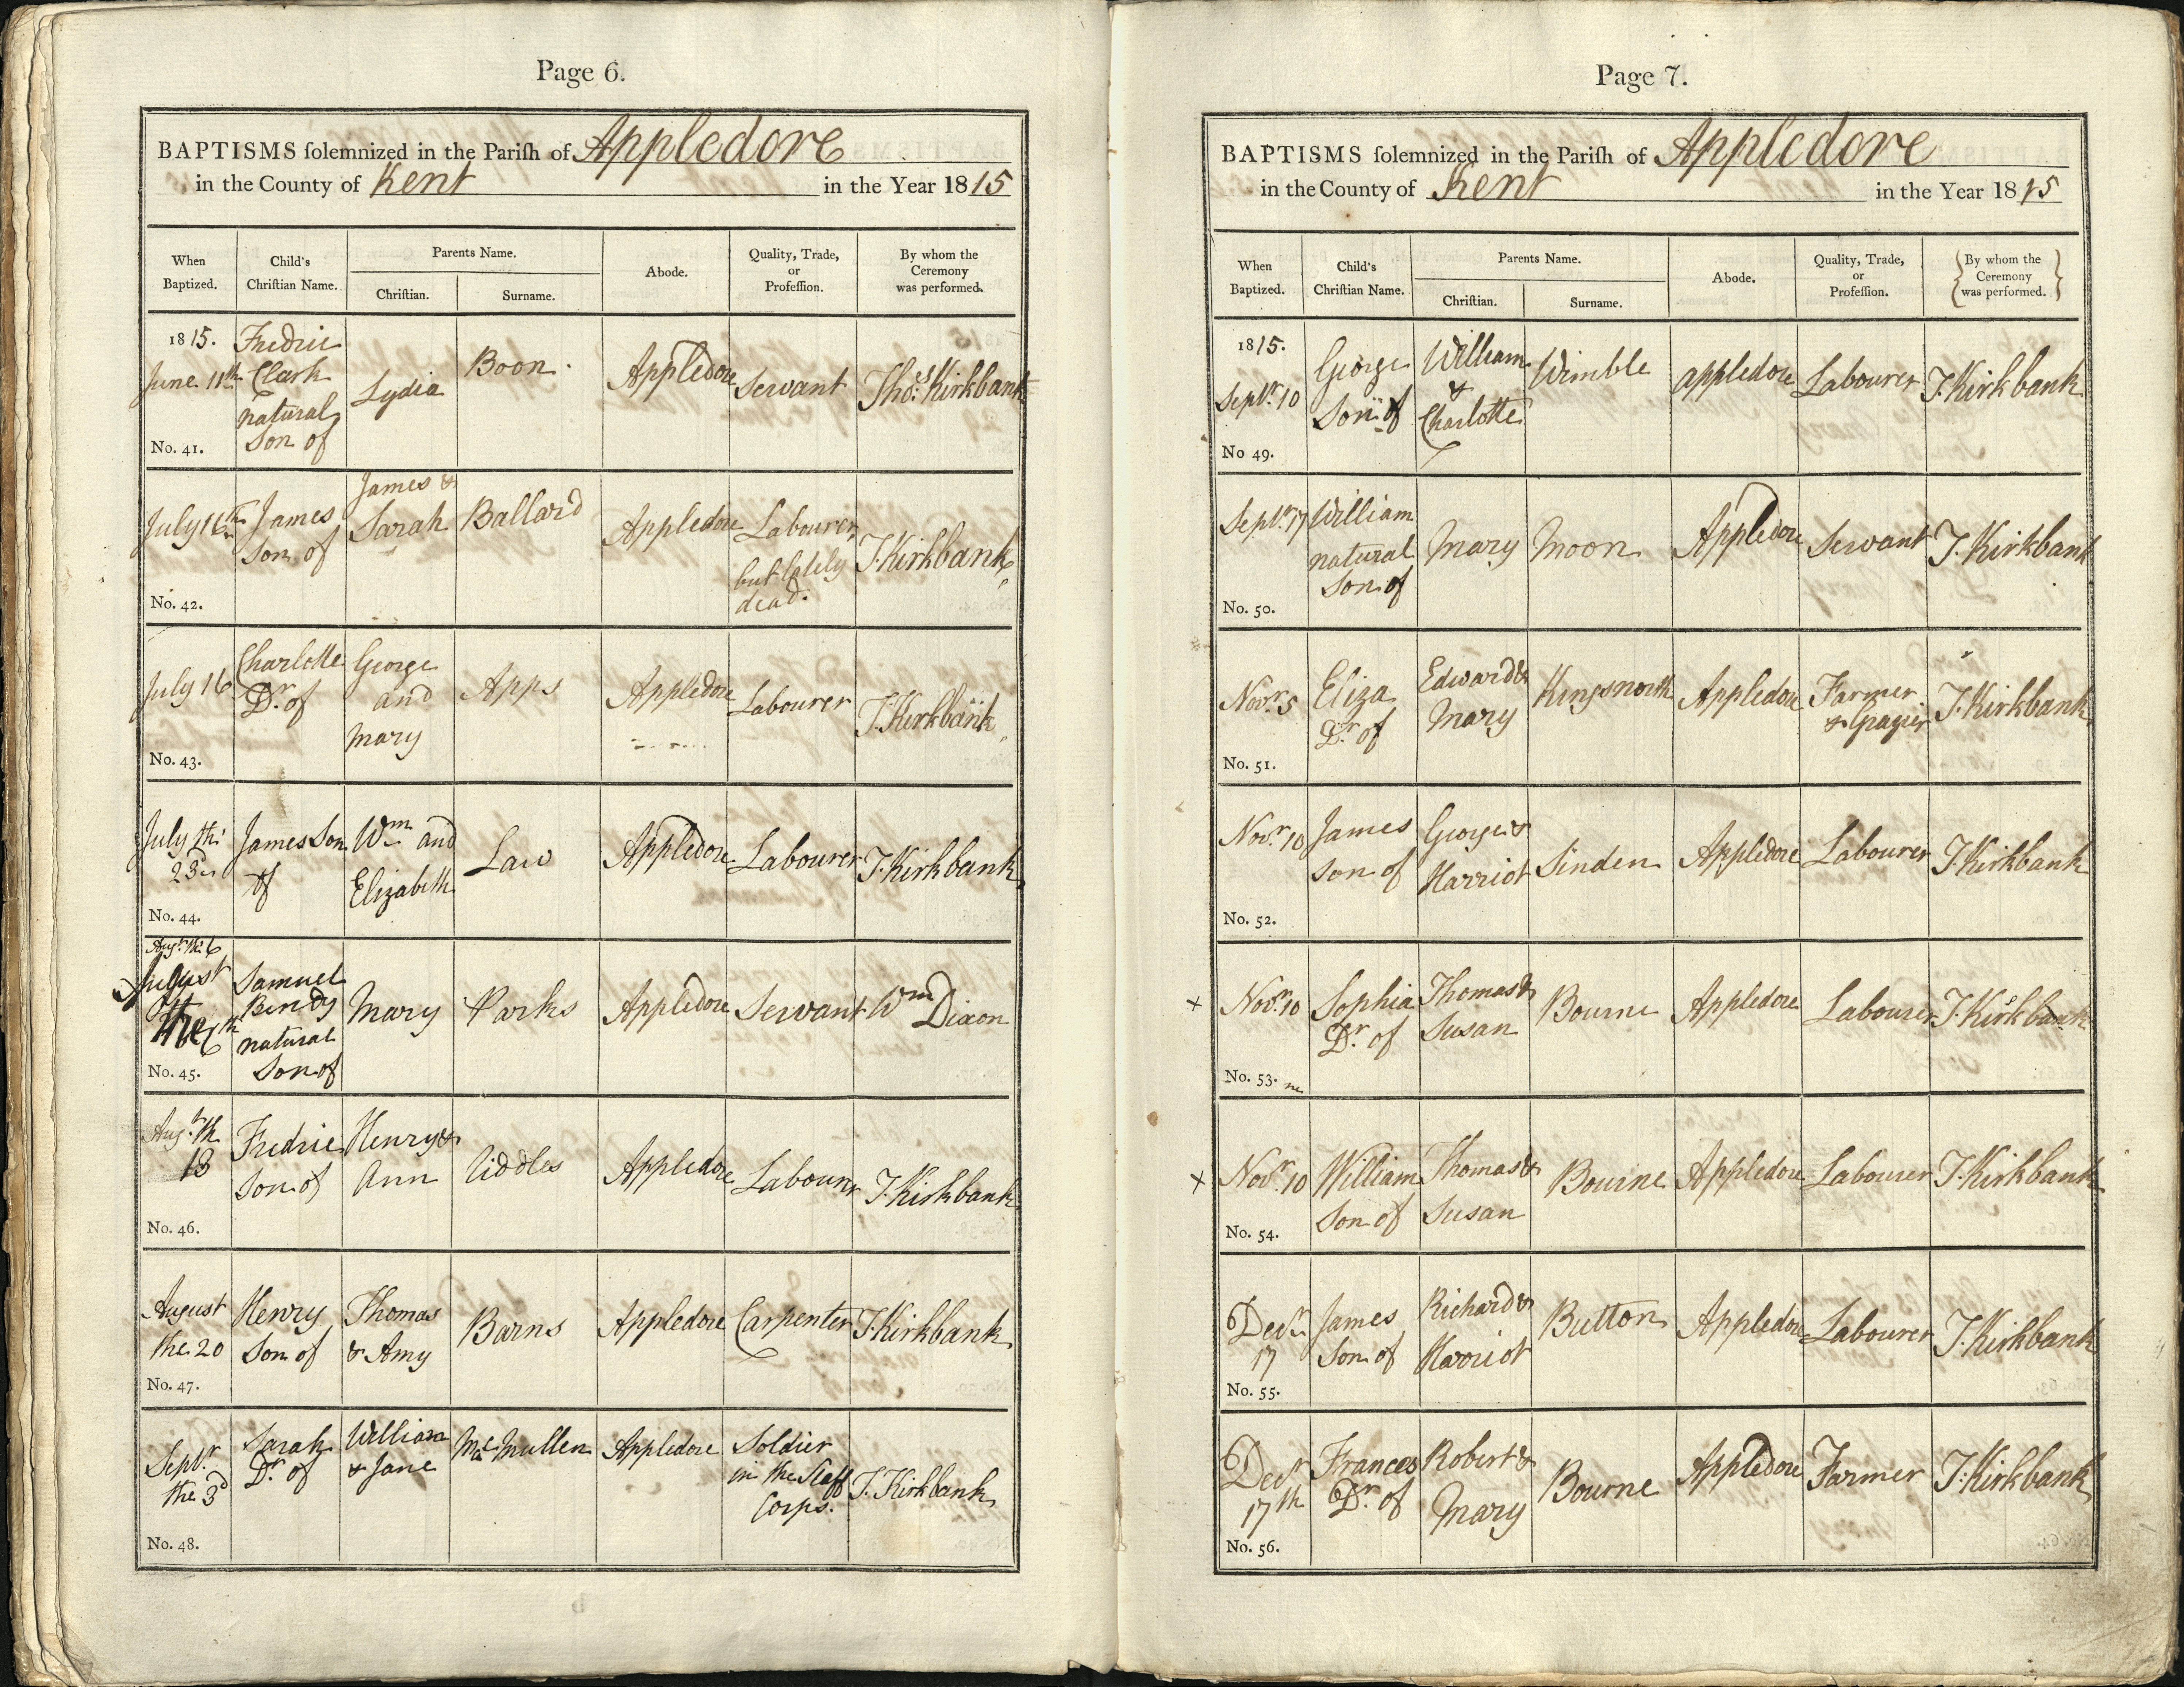 Page 6.
BAPTISMS ſolemnized in the Pariſh of Appledore
in the County of Kent in the Year 1815
When Baptized. Child's Chriſtian Name. Parents Name. Chriſtian. Surname. Abode. Quality, Trade, or Profeſſion. By whom the Ceremony was performed.
1815. June 11th No. 41. Fredric Clark natural Son of Lydia Boon Appledore Servant Thos. Kirkbank
July 16th No. 42. James Son of James & Sarah Ballard Appledore Labourer, but lately dead. T. Kirkbank
July 16 No. 43. Charlotte Dr. of George and Mary Apps Appledore Labourer T. Kirkbank
July th: 23d No. 44. James Son of Wm and Elizabeth Law Appledore Labourer T. Kirkbank
Augt. th: 6 No. 45. Samuel natural Son of Mary Parks Appledore Servant Wm Dixon
Augt. th 13 No. 46. Fredric Son of Henry & Ann Uddles Appledore Labourer T. Kirkbank
August the 20 No. 47. Henry Son of Thomas & Amy Barns Appledore Carpenter T. Kirkbank
Septr. the 3d No. 48. Sarah Dr. of William & Jane McMullen Appledore Soldier in the Staff Corps. T. Kirkbank
Page 7.
BAPTISMS ſolemnized in the Pariſh of Appledore
in the County of Kent in the Year 1815
When Baptized. Child's Chriſtian Name. Parents Name. Chriſtian. Surname. Abode. Quality, Trade, or Profeſſion. By whom the Ceremony was performed.
1815. Septr. 10 No 49. George Son of William & Charlotte Wimble appledore Labourer T. Kirkbank
Septr. 17 No. 50. William natural Son of Mary Moon Appledore Servant T. Kirkbank
Novr. 5 No. 51. Eliza Dr. of Edward & Mary Kingsnorth Appledore Farmer & Grazier T. Kirkbank
Novr. 10 No. 52. James son of George & Harriot Sinden Appledore Labourer T. Kirkbank
x Novr. 10 No. 53. Sophia Dr. of Thomas & Susan Bourne Appledore Labourer T. Kirkbank
x Novr. 10 No. 54. William Son of Thomas & Susan Bourne Appledore Labourer T. Kirkbank
Decr. 17 No. 55. James Son of Richard & Harriot Button Appledore Labourer T. Kirkbank
Decr. 17th No. 56. Frances Dr. of Robert & Mary Bourne Appledore Farmer T. Kirkbank